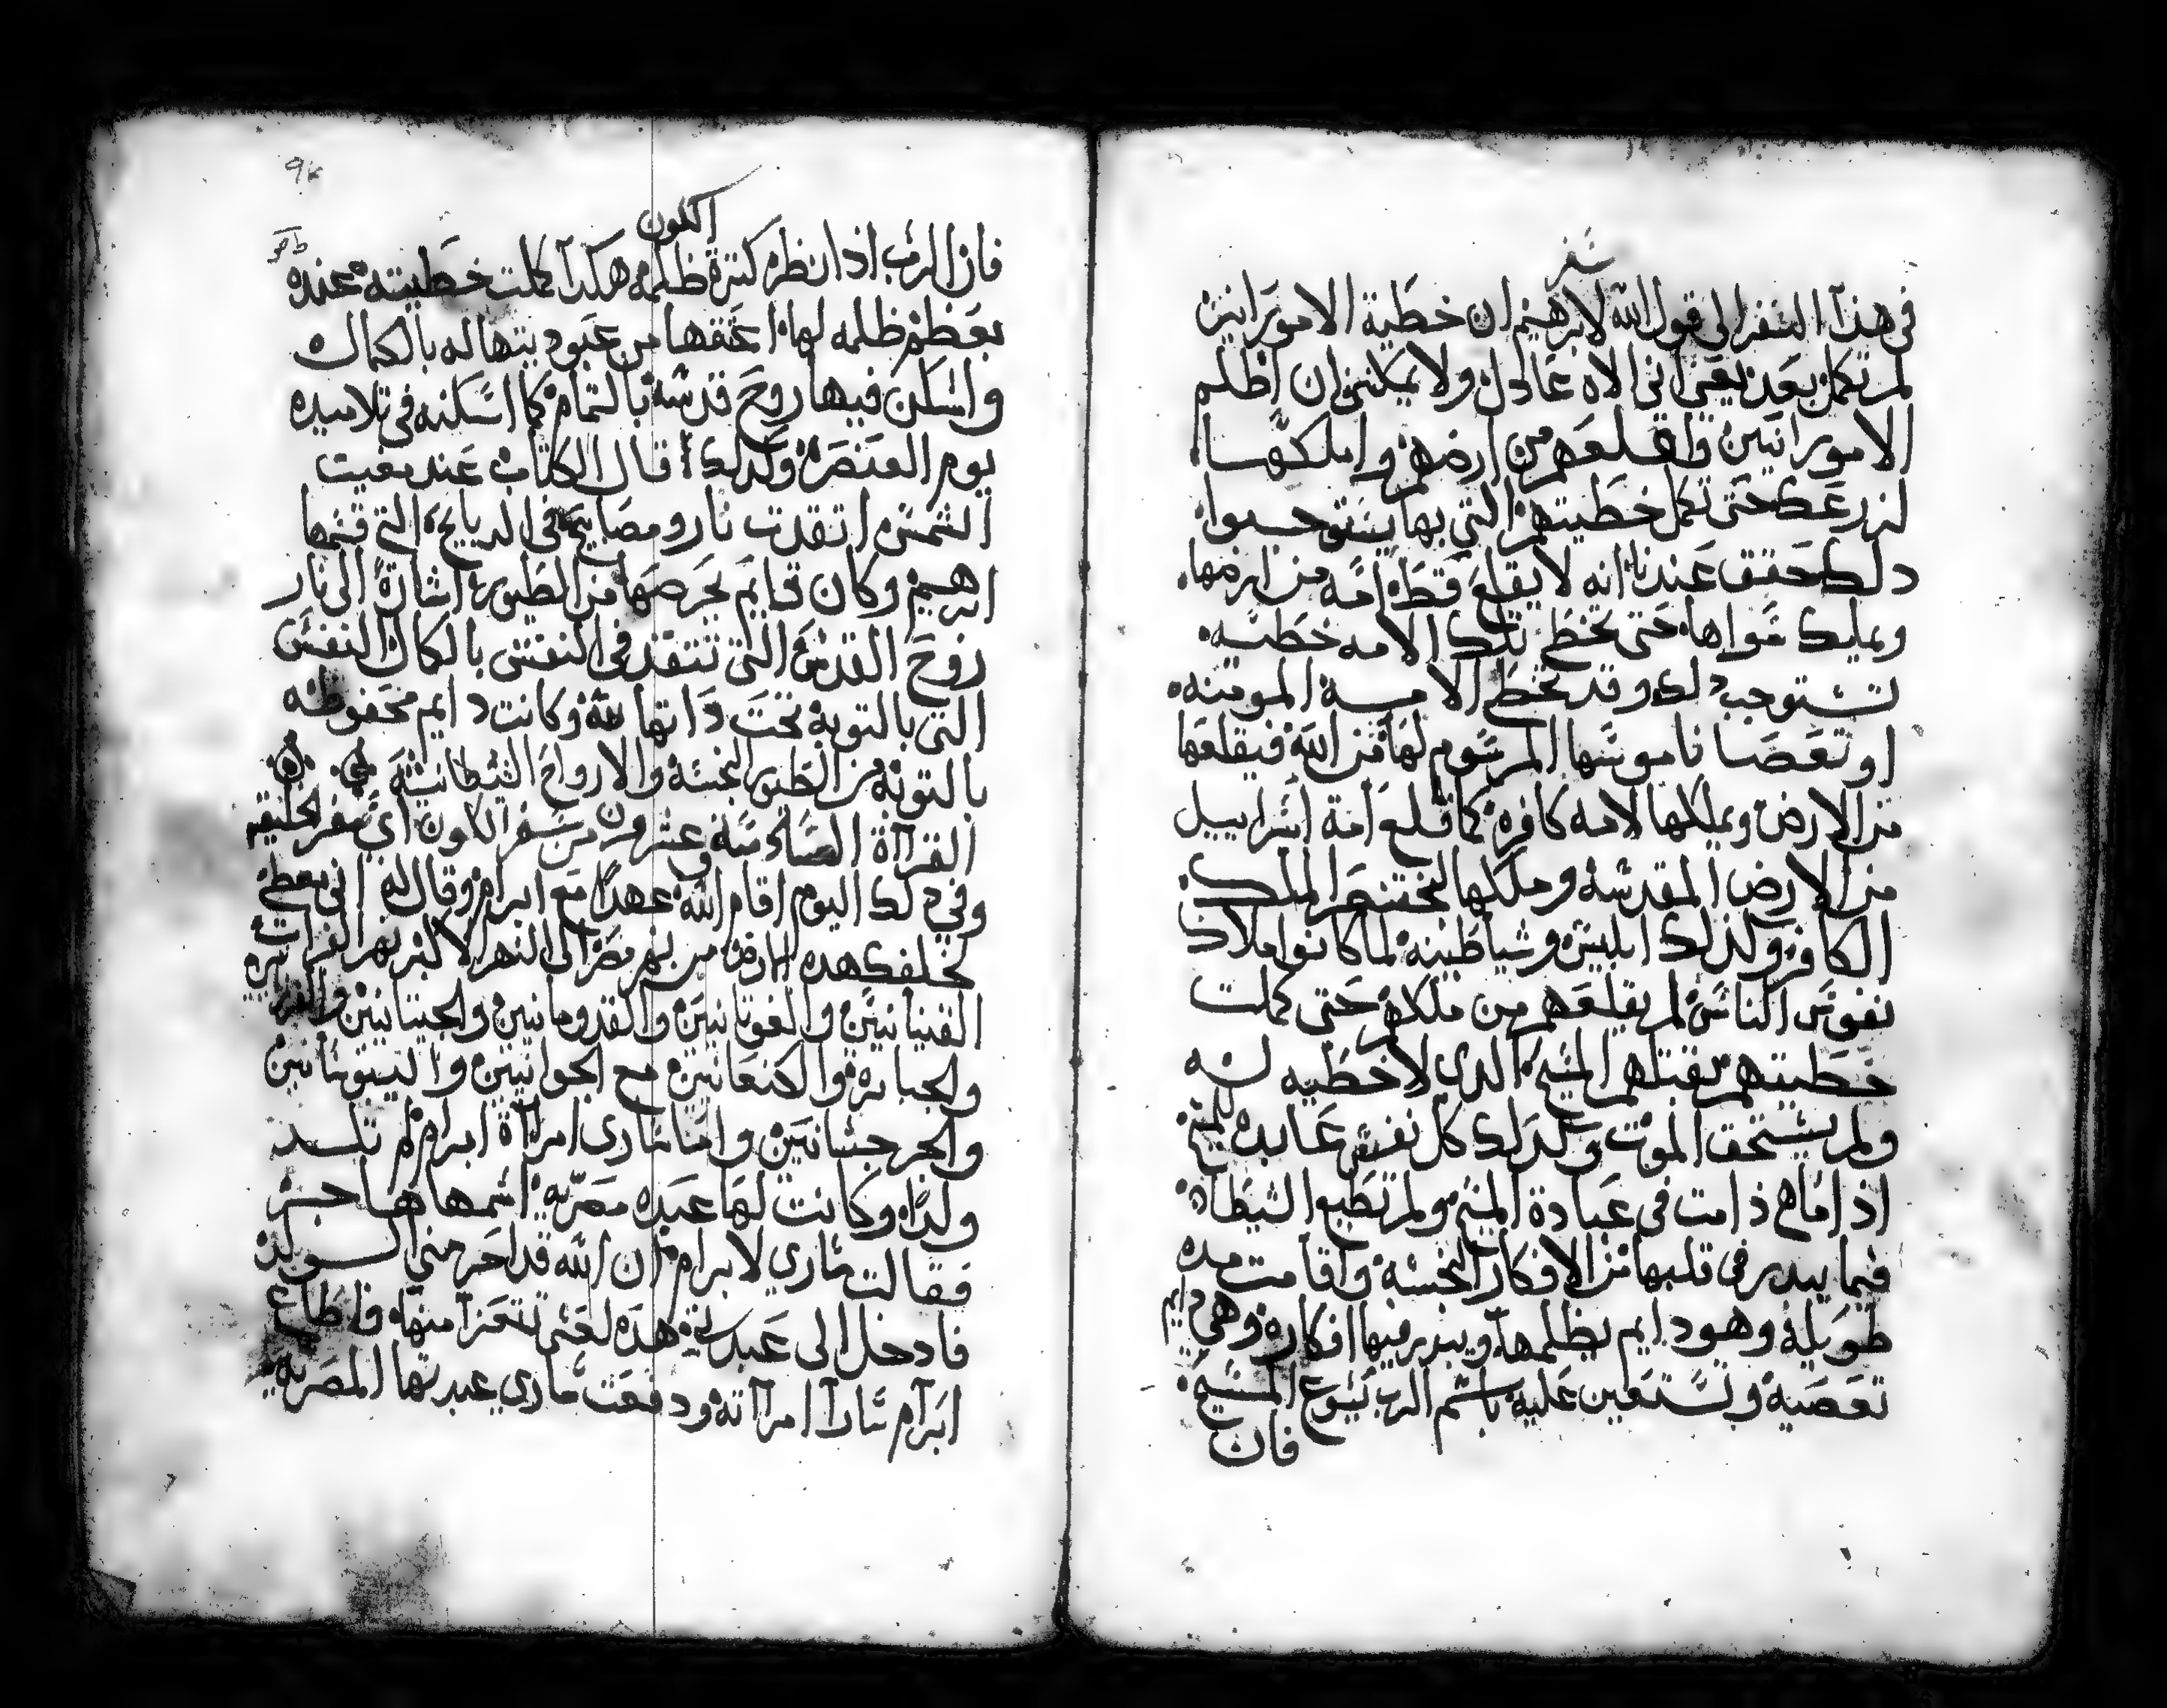 سفر
في هذا السفر الى قول الله لابرهيم ان خطية الامورانيين
لم تكمل بعد يعني اني الاه عادل ولا يمكنني ان اظلم
الامورانيين واقلعهم من ارضهم واملكها
لزرعك حتى تكمل خطيتهم التي بها يستوجبوا
دلك حقق عندنا انه لا يقلع قط امه من ارضها
ويملك سواها حتى تخطي تلك الامه خطيه
تستوجب دلك وقد تخطي الامه المومنه
او تعصا ناموسها المرسوم لها من الله فيقلعها
من الارض ويملكها لامه كافره كما قلع امة اسراييل
من الارض المقدسه وملكها لبختنصر الملك
الكافر ولذلك ابليس وشياطينه لما كانوا ملاك
نفوس الناس لم يقلعهم من ملكهم حتى كملت
خطيتهم بقتلهم المسيح الدي لا خطيه له
ولم يستحق الموت وكدلك كل نفس عابده للمسيح
اذا ما هي ذامت في عبادة المسيح ولم تطيع الشيطان
فيما يبدر في قلبها من الافكار النجسه واقامت مده
طويله وهو دايم يظلمها ويبدر فيها افكاره وهي دايم
تعصيه وتستعين عليه باسم الرب يسوع المسيح
فان
الكون
فان الرب اذا نظر كترة ظلمه هكدا كملت خطيته عنده
بعظم ظلمه لها اعتقها من عبوديتها له بالكمال
واسكن فيها روح قدسه بالتمام كما اسكنه في تلاميده
يوم العنصره ولدلك قال الكتاب عند مغيب
الشمس اتقدت نار ومصابيح في الدبايح التي قسمها
ابرهيم وكان قايم يحرصها من الطيور اشارة الى نار
روح القدس التي تتقد في النفس بالكمال النفس
التي بالتوبه تحت داتها لله وكانت دايم محفوظه
بالتوبه من الطير النجسه والارواح الشيطانيه
القراآة السادسه وعشرون من سفر الكون اي سفر الخليقه
وفي دلك اليوم اقام الله عهدا مع ابرام وقال له اني معطي
لخلفك هده الارض من نهر مصر الى النهر الاكبر نهر الفرات
القينيانيين والقدومانيين والحيتانيين
والجبابره والكنعانيين مع الحوانيين واليبوسانيين
والجرجسانيين واما ساري امرااة ابرام لم تلد
ولدا وكانت لها عبده مصريه اسمها هاجر
فقالت ساري لابرام ان الله قد احرمني الولد
فادخل الى عبدتي هده لعلي نتعزا منها فاطاع
ابرام سارا امرااته ودفعت ساري عبدتها المصريه